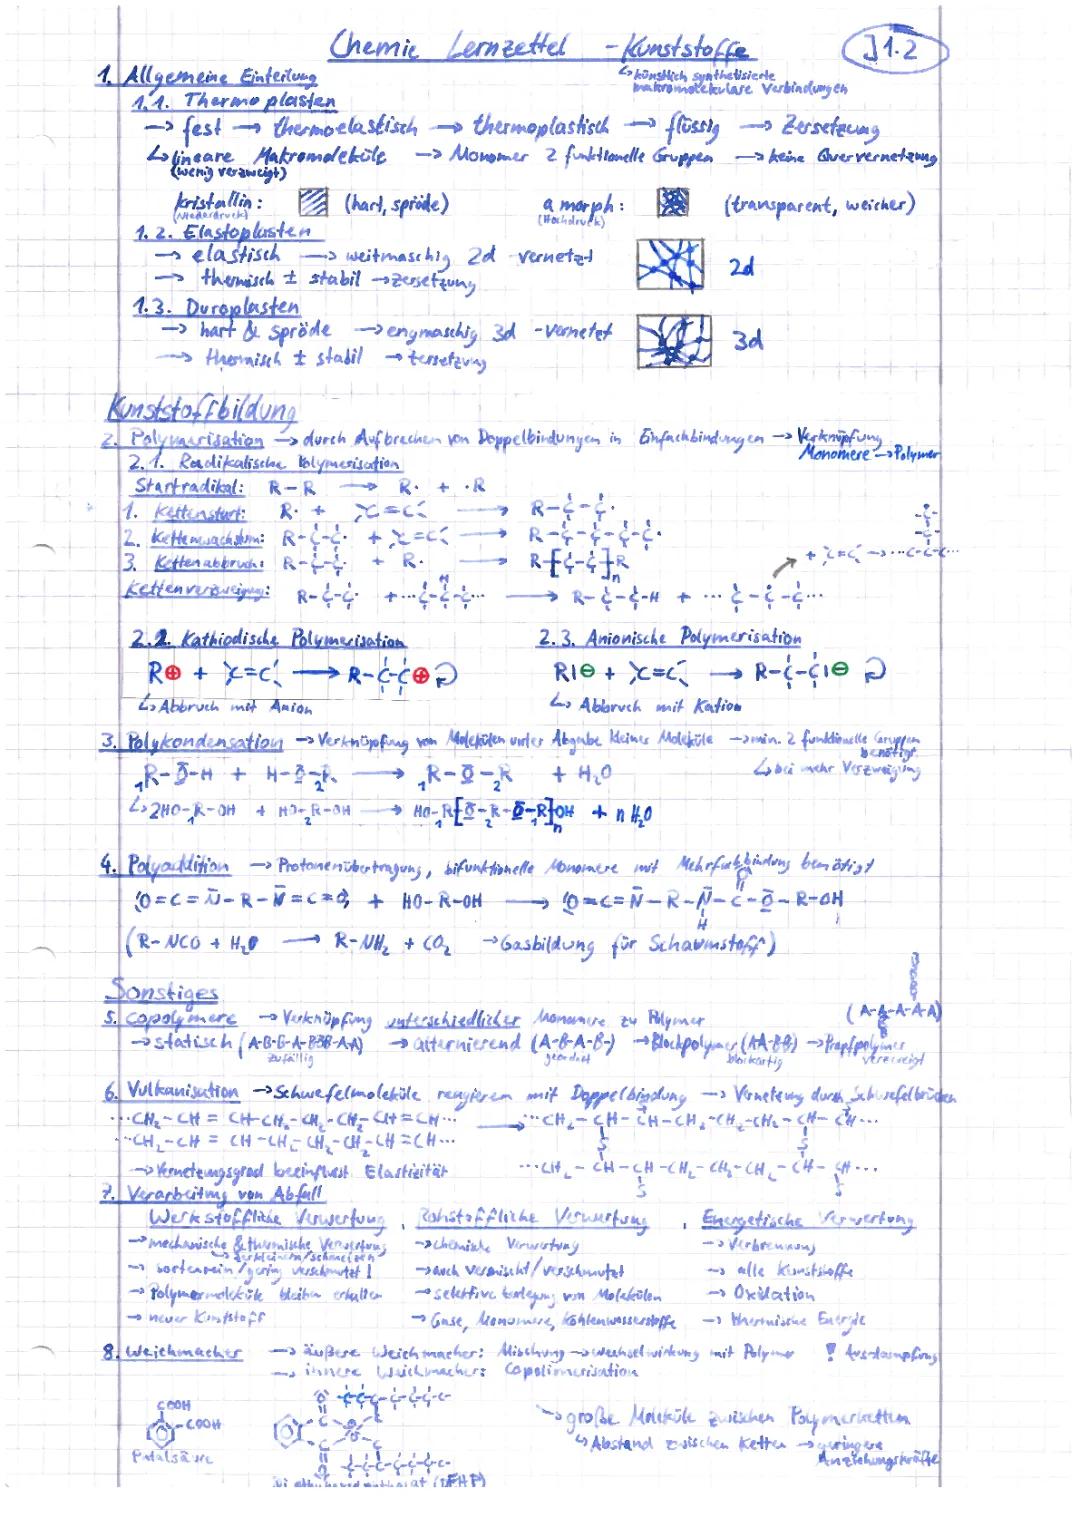 Chemie Lernzettel - Kunststoffe
J1.2
↳ künstlich synthetisierte
makromolekulare Verbindungen
1. Allgemeine Einteilung
1.1. Thermoplasten
→ fest → thermoelastisch → thermoplastisch → flüssig → Zersetzung
↳ lineare Makromoleküle → Monomer 2 funktionelle Gruppen → keine Quervernetzung
(wenig verzweigt)
kristallin: (hart, spröde) amorph: (transparent, weicher)
(Niederdruck) (Hochdruck)
1.2. Elastoplasten
→ elastisch → weitmaschig 2d vernetzt
2d
→ thermisch ± stabil → Zersetzung
1.3. Duroplasten
→ hart & spröde → engmaschig 3d - vernetzt
3d
→ thermisch ± stabil → Zersetzung
Kunststoffbildung
2. Polymerisation → durch Aufbrechen von Doppelbindungen in Einfachbindungen → Verknüpfung
Monomere → Polymer
2.1. Radikalische Polymerisation
Startradikal: R-R → R· + ·R
1. Kettenstart: R· + C=C → R-C-C·
2. Kettenwachstum: R-C-C· + C=C → R-C-C-C-C·
3. Kettenabbruch: R-C-C· + R· → R-[C-C]nR
+ C=C → ...C-C-C...
Kettenverzweigung: R-C-C· + ...C-C-C... → R-C-C-H + ...C-C-C...
2.2. Kathiodische Polymerisation 2.3. Anionische Polymerisation
R⊕ + C=C → R-C-C⊕ R|⊖ + C=C → R-C-C|⊖
↳ Abbruch mit Anion ↳ Abbruch mit Kation
3. Polykondensation → Verknüpfung von Molekülen unter Abgabe kleiner Moleküle → min. 2 funktionelle Gruppen
benötigt
↳ bei mehr Verzweigung
₁R-O-H + H-O-R₂ → ₁R-O-₂R + H₂O
↳ 2HO-R₁-OH + HO-R₂-OH → HO-R₁[O-R₂-O-R₁]nOH + n H₂O
4. Polyaddition → Protonenübertragung, bifunktionelle Monomere mit Mehrfachbindung benötigt
O=C=N-R-N=C=O + HO-R-OH → O=C=N-R-N-C-O-R-OH
H
(R-NCO + H₂O → R-NH₂ + CO₂ → Gasbildung für Schaumstoff)
Sonstiges
5. Copolymere → Verknüpfung unterschiedlicher Monomere zu Polymer
(A-A-A-A-A)
→ statisch (A-B-B-A-BBB-A-A) → alternierend (A-B-A-B-) → Blockpolymer (AA-BB) → Propfpolymer
zufällig geordnet blockartig verzweigt
6. Vulkanisation → Schwefelmoleküle reagieren mit Doppelbindung → Vernetzung durch Schwefelbrücken
...CH₂-CH=CH-CH₂-CH₂-CH=CH... → ...CH₂-CH-CH-CH₂-CH₂-CH-CH...
...CH₂-CH=CH-CH₂-CH₂-CH=CH...
→ Vernetzungsgrad beeinflusst Elastizität ...CH₂-CH-CH-CH₂-CH₂-CH-CH...
7. Verarbeitung von Abfall
Werkstoffliche Verwertung Rohstoffliche Verwertung Energetische Verwertung
→ mechanische & thermische Verwertung → chemische Verwertung → Verbrennung
↳ zerkleinern/schmelzen
→ sortenrein/gering verschmutzt! → auch vermischt/verschmutzt → alle Kunststoffe
→ Polymermoleküle bleiben erhalten → selektive Zerlegung von Molekülen → Oxidation
→ neuer Kunststoff → Gase, Monomere, Kohlenwasserstoffe → thermische Energie
8. Weichmacher → äußere Weichmacher: Mischung → Wechselwirkung mit Polymer ! Ausdampfung
→ innere Weichmacher: Copolimerisation
COOH
-COOH
→ große Moleküle zwischen Polymerketten
↳ Abstand zwischen Ketten → geringere
Anziehungskräfte
(DEHP)